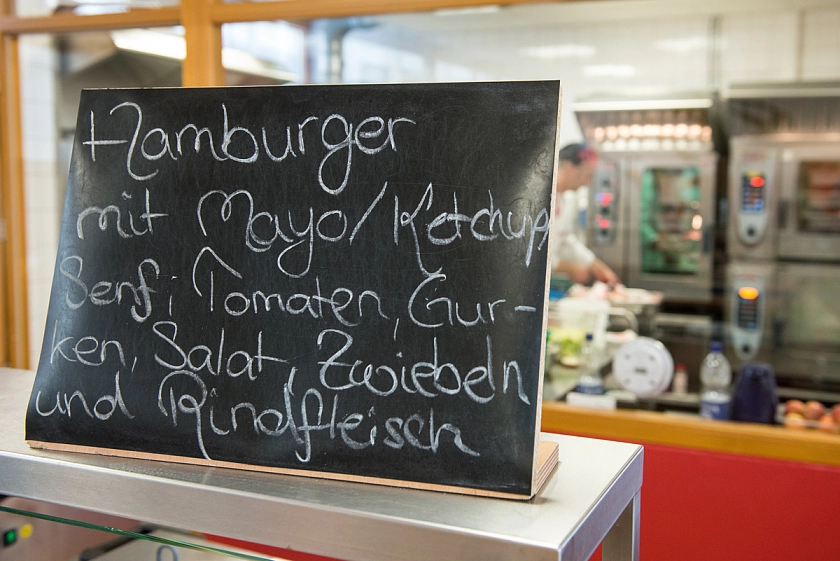 Hamburger
mit Mayo/Ketchup
Senf, Tomaten, Gur-
ken, Salat, Zwiebeln
und Rindfleisch